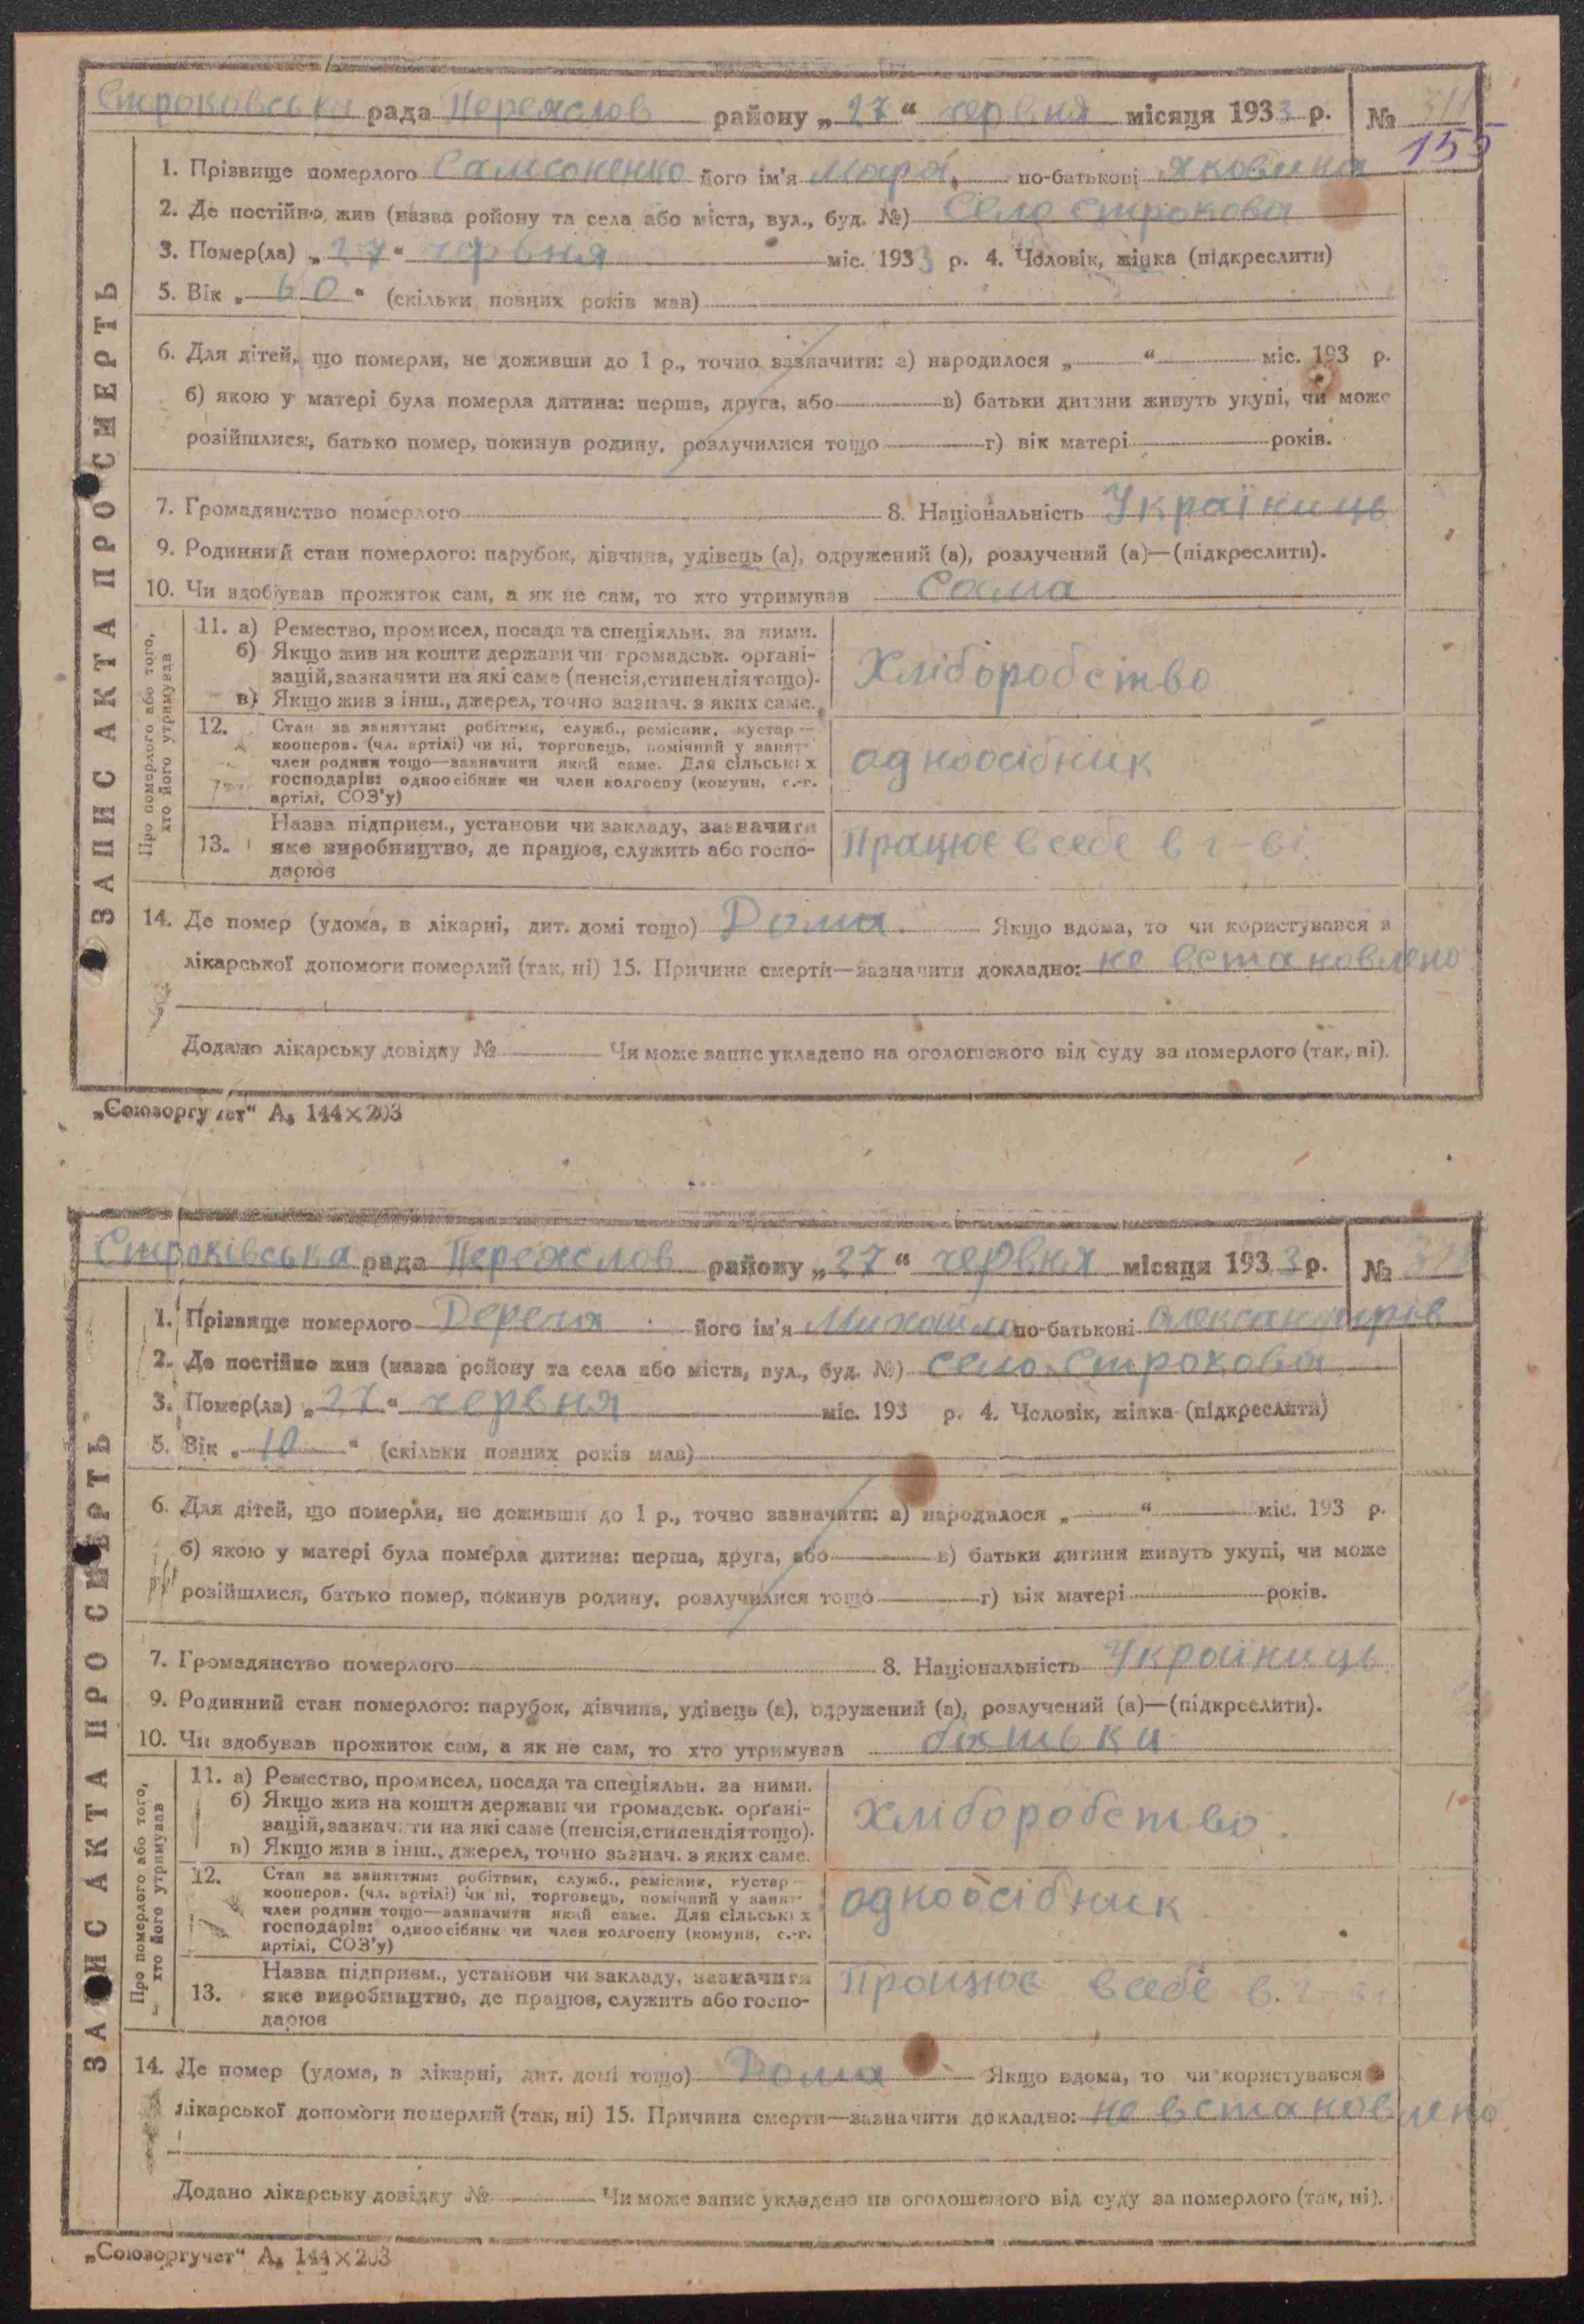 Строковська рада Переяслов району „27“ червня місяця 1933 р. № 311
155
1. Прізвище померлого Самсоненко його ім'я Марія, по-батькові Яковина
2. Де постійно жив (назва ройону та села або міста, вул., буд. №) Село Строкова
3. Помер(ла) „27“ червня міс. 1933 р. 4. Чоловік, жінка (підкреслити)
5. Вік „60“ (скільки повних років мав)
6. Для дітей, що померли, не доживши до 1 р., точно зазначити: а) народилося „ “ міс. 193 р.
б) якою у матері була померла дитина: перша, друга, або в) батьки дитини живуть укупі, чи може
розійшлися, батько помер, покинув родину, розлучилися тощо г) вік матері років.
7. Громадянство померлого 8. Національність Україниць
9. Родинний стан померлого: парубок, дівчина, удівець (а), одружений (а), розлучений (а)—(підкреслити).
10. Чи здобував прожиток сам, а як не сам, то хто утримував Сама
ЗАПИС АКТА ПРО СМЕРТЬ
Про померлого або того, хто його утримував
11. а) Ремество, промисел, посада та спеціяльн. за ними.
б) Якщо жив на кошти держави чи громадськ. органі-
зацій, зазначити на які саме (пенсія, стипендія тощо).
в) Якщо жив з інш., джерел, точно зазнач. з яких саме.
Хліборобство
12. Стан за заняттям: робітник, служб., ремісник, кустар—
кооперов. (чл. артілі) чи ні, торговець, помічний у занят-
член родини тощо—зазначити який саме. Для сільських
господарів: одноосібник чи член колгоспу (комуни, с.-г.
артілі, СОЗ'у)
одноосібник
13. Назва підприєм., установи чи закладу, зазначити
яке виробництво, де працює, служить або госпо-
дарює
Працює в себе в г-ві.
14. Де помер (удома, в лікарні, дит. домі тощо) Дома. Якщо вдома, то чи користувався з
лікарської допомоги померлий (так, ні) 15. Причина смерти—зазначити докладно: не встановлено
Додано лікарську довідку № Чи може запис укладено на оголошеного від суду за померлого (так, ні).
„Союзоргучет“ А₅ 144×203
Строківська рада Переяслов району „27“ червня місяця 1933 р. №
1. Прізвище померлого Дереча його ім'я Михайло по-батькові Олександров
2. Де постійно жив (назва ройону та села або міста, вул., буд. №) село Строкова
3. Помер(ла) „27“ червня міс. 193 р. 4. Чоловік, жінка (підкреслити)
5. Вік „10“ (скільки повних років мав)
6. Для дітей, що померли, не доживши до 1 р., точно зазначити: а) народилося „ “ міс. 193 р.
б) якою у матері була померла дитина: перша, друга, або в) батьки дитини живуть укупі, чи може
розійшлися, батько помер, покинув родину, розлучилися тощо г) вік матері років.
7. Громадянство померлого 8. Національність Україниць
9. Родинний стан померлого: парубок, дівчина, удівець (а), одружений (а), розлучений (а)—(підкреслити).
10. Чи здобував прожиток сам, а як не сам, то хто утримував батьки
ЗАПИС АКТА ПРО СМЕРТЬ
Про померлого або того, хто його утримував
11. а) Ремество, промисел, посада та спеціяльн. за ними.
б) Якщо жив на кошти держави чи громадськ. органі-
зацій, зазначити на які саме (пенсія, стипендія тощо).
в) Якщо жив з інш., джерел, точно зазнач. з яких саме.
Хліборобство.
12. Стан за заняттям: робітник, служб., ремісник, кустар—
кооперов. (чл. артілі) чи ні, торговець, помічний у занят-
член родини тощо—зазначити який саме. Для сільських
господарів: одноосібник чи член колгоспу (комуни, с.-г.
артілі, СОЗ'у)
одноосібник
13. Назва підприєм., установи чи закладу, зазначити
яке виробництво, де працює, служить або госпо-
дарює
Працює в себе в.
14. Де помер (удома, в лікарні, дит. домі тощо) Дома Якщо вдома, то чи користувався з
лікарської допомоги померлий (так, ні) 15. Причина смерти—зазначити докладно: не встановлено
Додано лікарську довідку № Чи може запис укладено на оголошеного від суду за померлого (так, ні).
„Союзоргучет“ А₅ 144×203